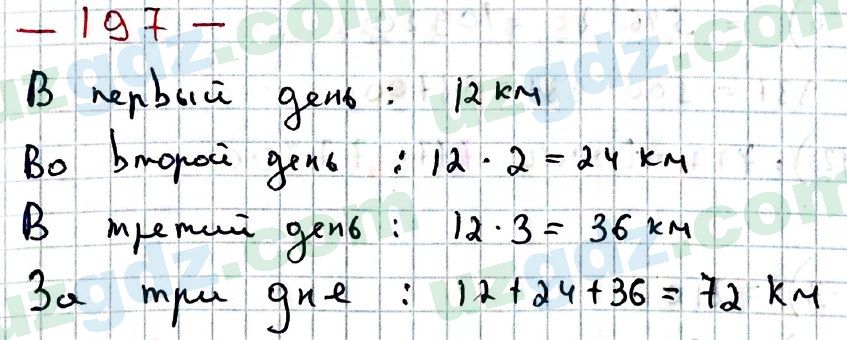 — 197 —
В первый день : 12 км
Во второй день : 12 · 2 = 24 км
В третий день : 12 · 3 = 36 км
За три дне : 12 + 24 + 36 = 72 км
uzgdz.com